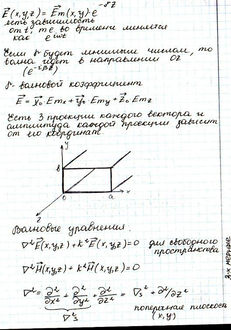 E⃗(x,y,z) = E⃗m(x,y)·e^-γz
есть зависимость
от t, т.е во времени меняется
как e^iωt
Если γ будет мнимым числом, то
волна идет в направлении OZ
(e^-iβz)
γ-волновой коэффициент
E⃗ = x⃗₀Emx + y⃗₀Emy + z⃗₀Emz
Есть 3 проекции каждого вектора и
амплитуда каждой проекции зависит
от его координат.
y
b
0 a x
z
Волновые уравнения.
∇²E⃗(x,y,z)+k²E⃗(x,y,z)=0 для свободного
пространства
∇²H⃗(x,y,z)+k²H⃗(x,y,z)=0
∇² = ∂²/∂x² + ∂²/∂y² + ∂²/∂z² = ∇²s + ∂²/∂z²
∇²s
поперечная плоскость
(x,y)